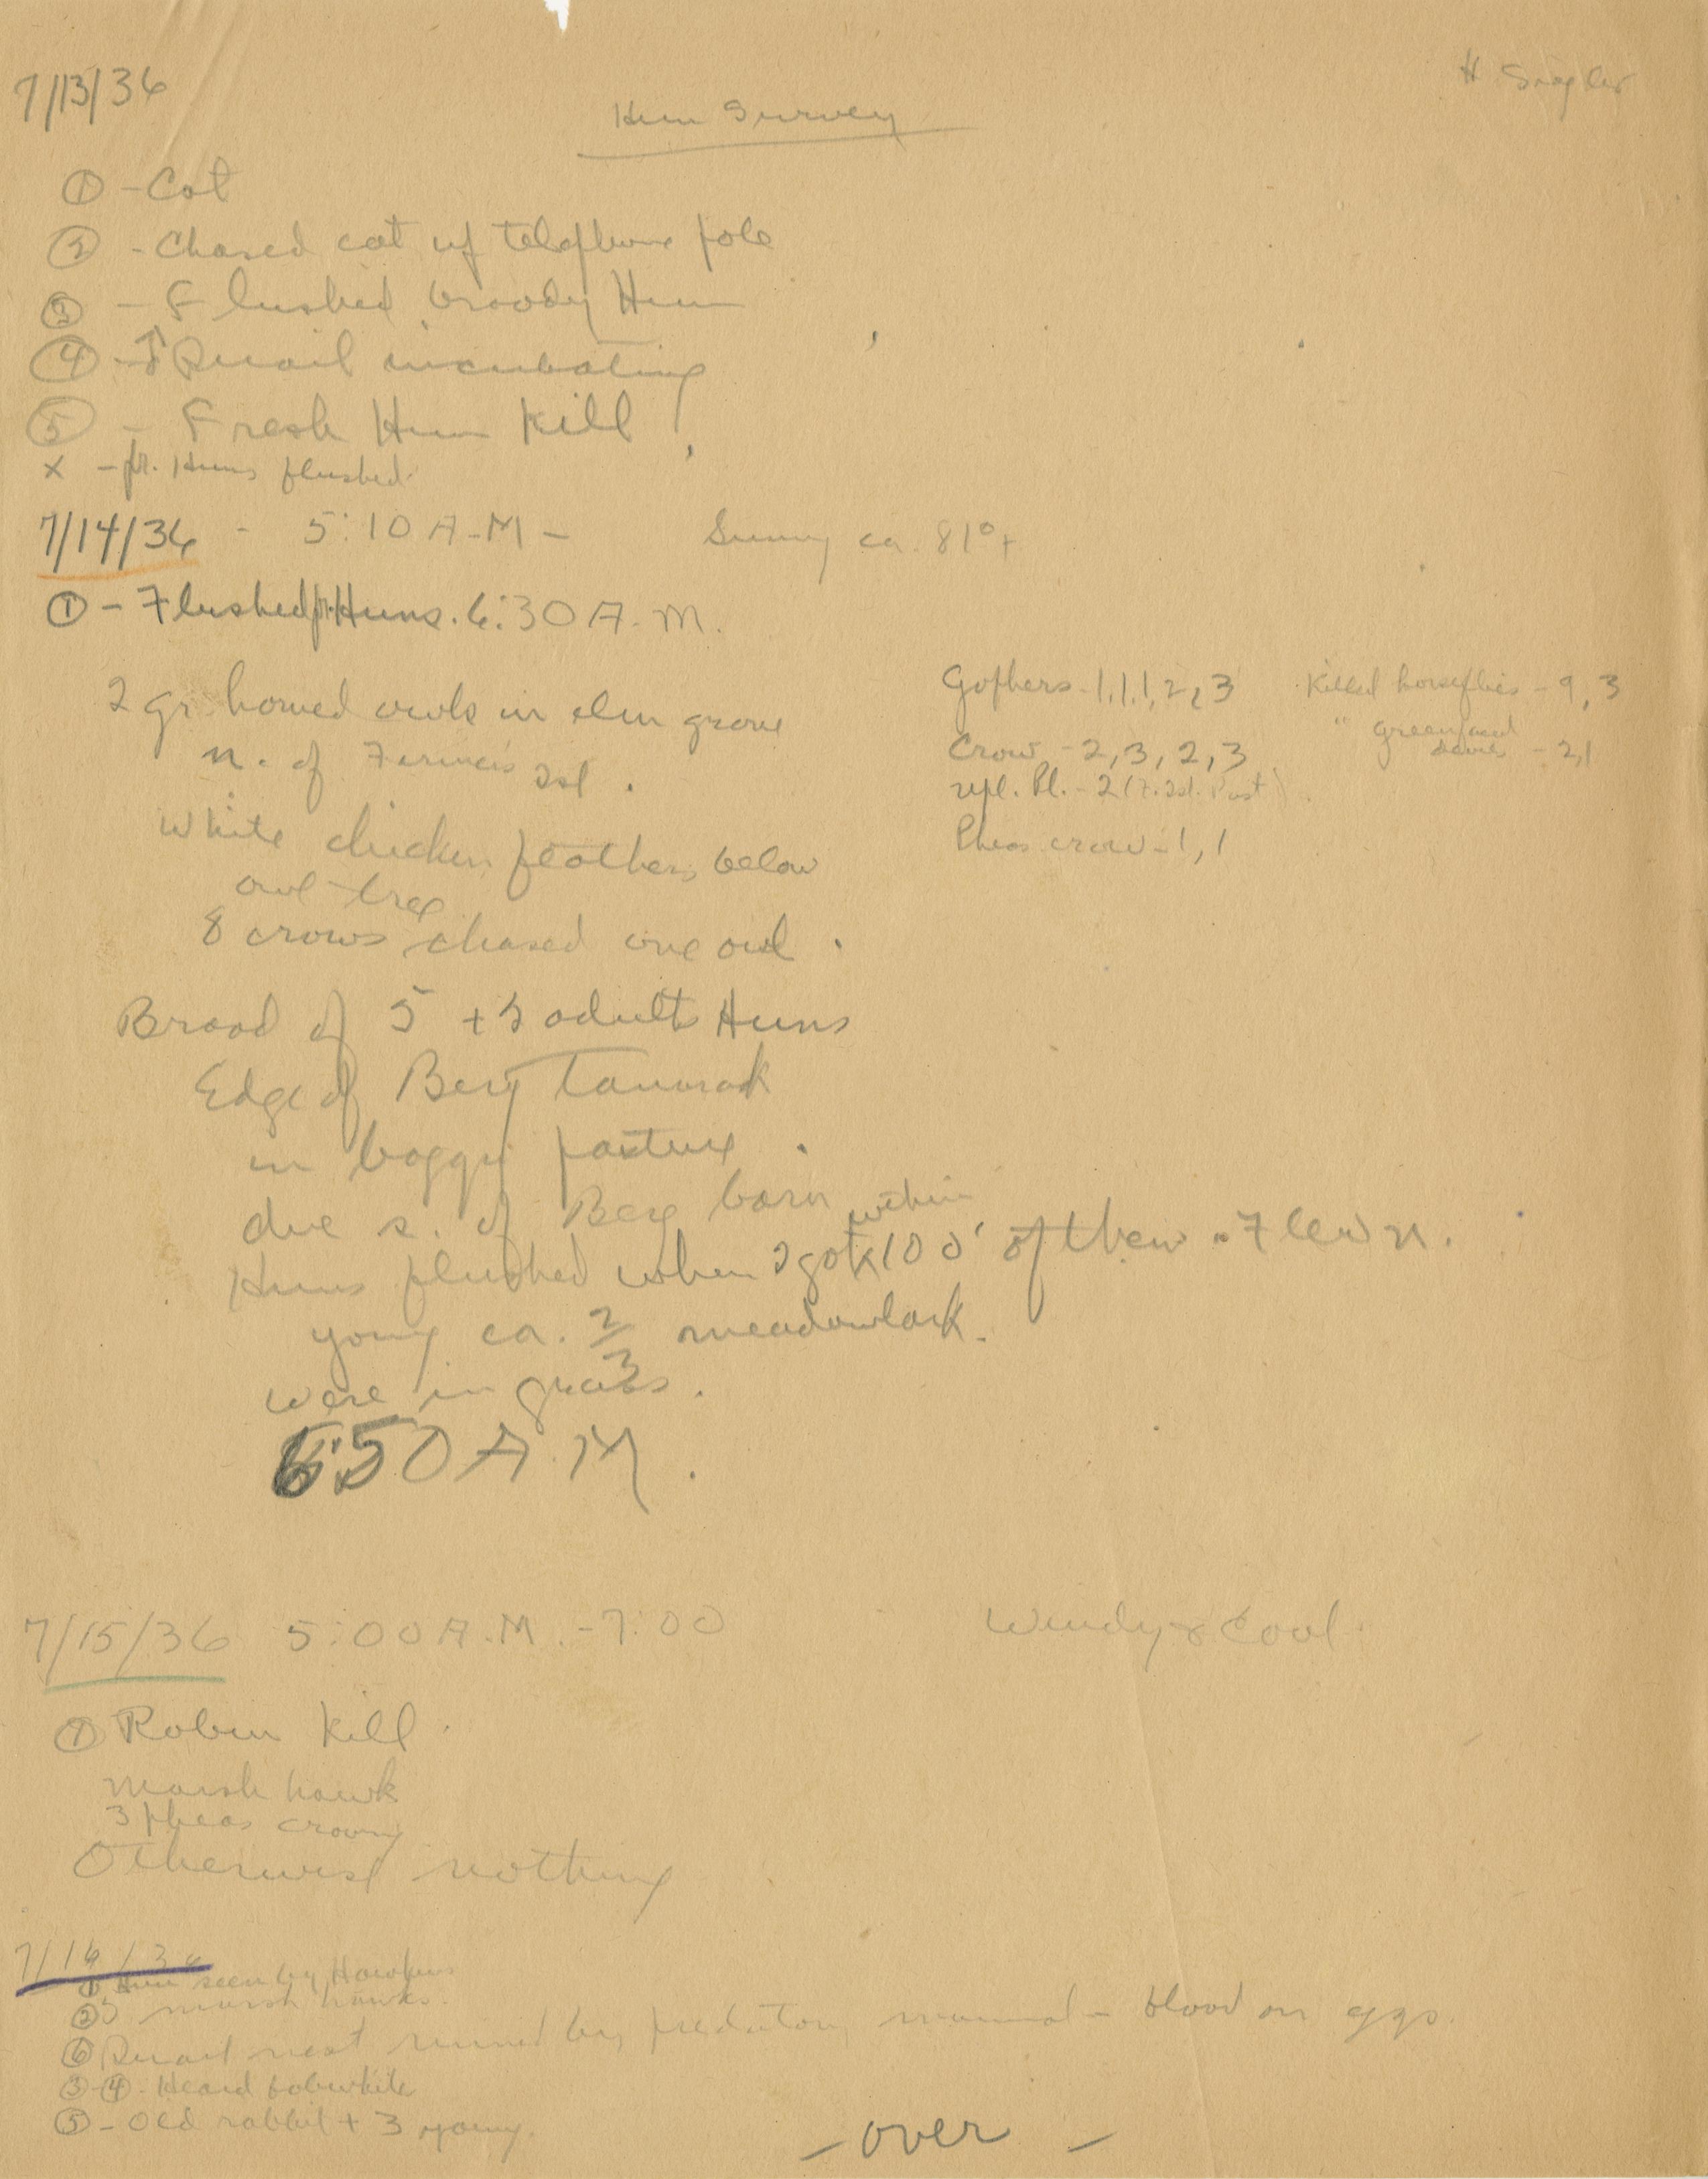 7/13/36
Hun Survey
① - Cat
② - Chased cat up telephone pole
③ - Flushed broody Hun
④ - ↑ Quail incubating
⑤ - Fresh Hun Kill!
x - pr. Huns flushed.
7/14/36 - 5:10 A.M - Sunny ca. 81°+
① - Flushed pr. Huns. 6:30 A.M.
2 gr. horned owls in elm grove
n. of Farmer's Isl.
White chicken feathers below
owl tree
8 crows chased one owl.
Gophers - 1,1,1,2,3 Killed horseflies - 9,3
Crow - 2,3,2,3 " greenhead - 2,1
upl. Pl. - 2 (F. Isl. Past)
Pheas. crow - 1,1
Brood of 5 + 2 adult Huns
Edge of Berg Tamarack
in boggy pasture.
due s. of Berg barn
Huns flushed when I got within 100' of them. Flew n.
young ca. 2/3 meadowlark.
were in grass.
6:50 A.M.
7/15/36 5:00 A.M. - 7:00 Windy & Cool.
① Robin Kill.
Marsh hawk
3 pheas crowing
Otherwise nothing
7/16/36
① Hun seen by Hawkins
② 3 marsh hawks.
⑥ Quail nest ruined by predatory mammal - blood on eggs.
③-④ - Heard bobwhite
⑤ - Old rabbit + 3 young.
- over -